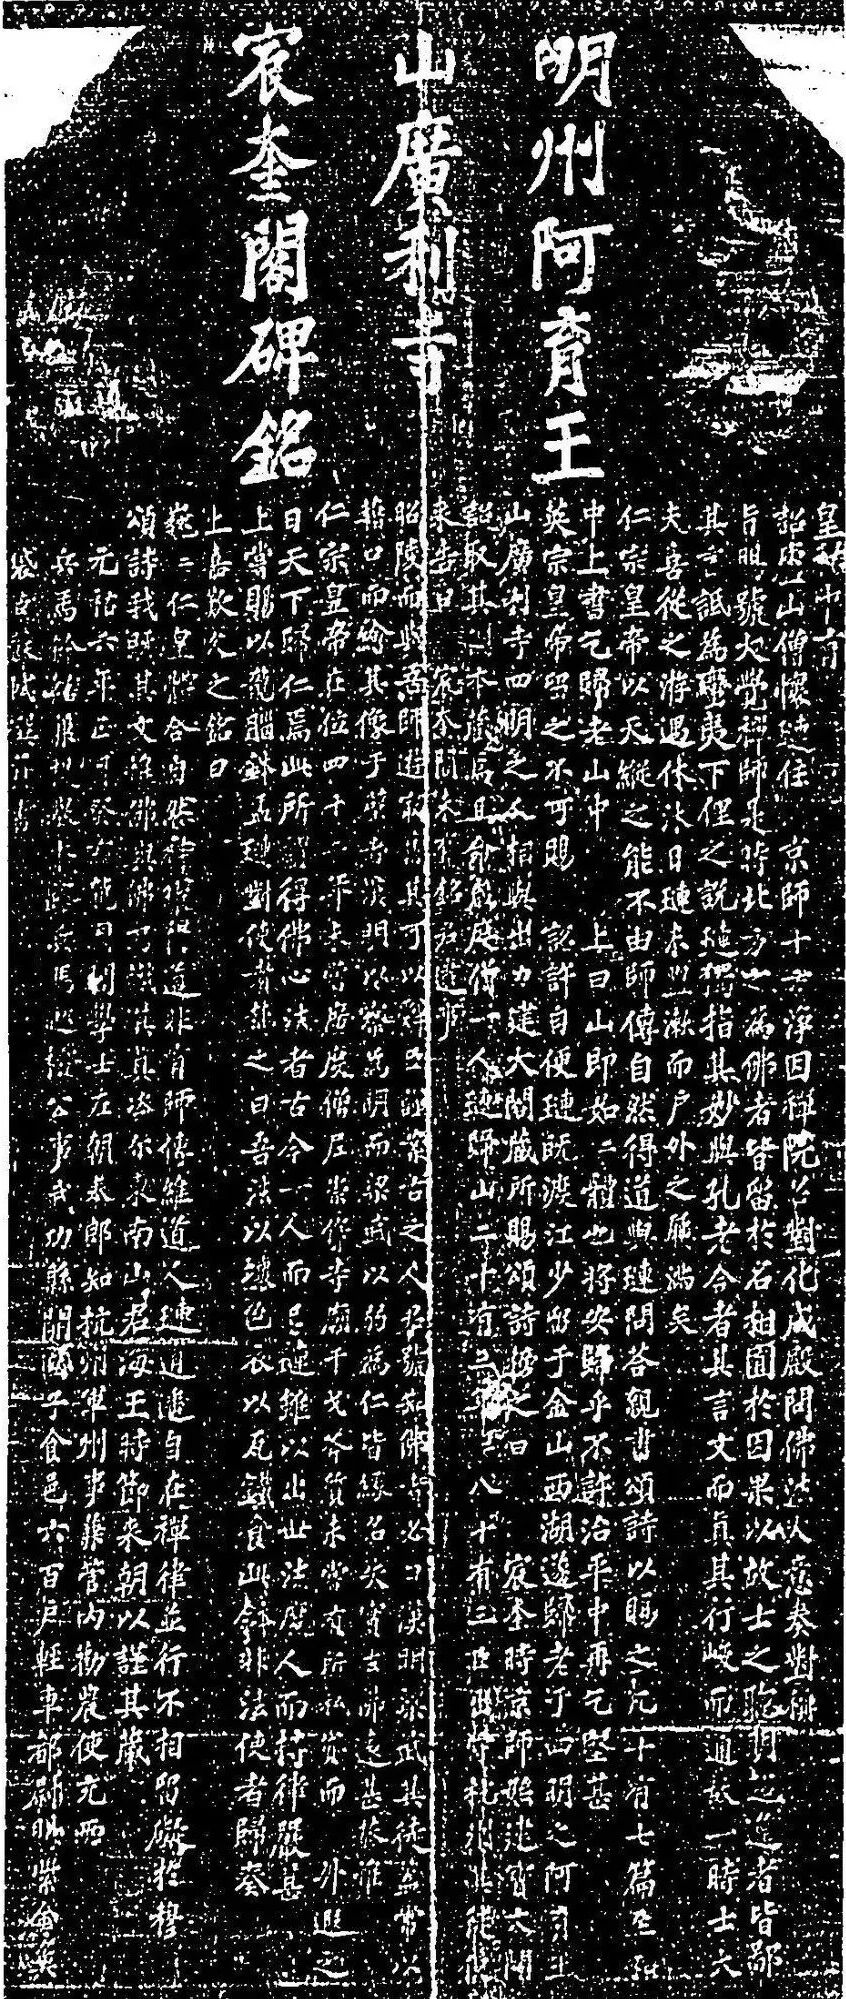 明州阿育王
山廣利寺
宸奎閣碑銘
皇祐中有
詔廬山僧懷璉住 京師十方淨因禪院召對化成殿問佛法大意奏對稱
旨賜號大覺禪師是時北方之為佛者皆留於名相囿於因果以故士之聰明超逸者皆鄙
其言詆為蠻夷下俚之說璉獨指其妙與孔老合者其言文而真其行峻而通故一時士大
夫喜從之游遇休沐日璉未盥漱而戶外之屨滿矣
仁宗皇帝以天縱之能不由師傳自然得道與璉問答親書頌詩以賜之凡十有七篇至和
中上書乞歸老山中 上曰山即如如體也將安歸乎不許治平中再乞堅甚
英宗皇帝留之不可賜 詔許自便璉既渡江少留于金山西湖遂歸老于四明之阿育王
山廣利寺四明之人相與出力建大閣藏所賜頌詩榜之曰 宸奎時京師始建寶文閣
詔取其副本藏焉且命歲度僧一人璉歸山二十有三年年八十有三臣出守杭州其徒使
來告曰 宸奎閣未有銘君逮事
昭陵而與吾師游最舊其可以辭臣謹案古之人君號知佛者必曰漢明梁武其徒蓋常以
藉口而繪其像于壁者漢明以察為明而梁武以弱為仁皆緣名失實去佛遠甚恭惟
仁宗皇帝在位四十二年未嘗廣度僧尼崇侈寺廟干戈斧質未嘗有所私貸而 升遐之
日天下歸仁焉此所謂得佛心法者古今一人而已璉雖以出世法度人而持律嚴甚
上嘗賜以龍腦鉢盂璉對使者焚之曰吾法以壞色衣以瓦鐵食此鉢非法使者歸奏
上嘉歎久之銘曰
巍巍仁皇體合自然神耀得道非有師傳維道人璉逍遙自在禪律並行不相留礙於穆
頌詩我既其文惟佛與佛乃識其真咨爾東南山君海王時節來朝以謹其藏
元祐六年正月癸 龍 閣學士左朝奉郎知杭州軍州事兼管內勸農使充兩
兵馬鈐轄 兵馬巡 公事武功縣開國子食邑六百戶輕車都尉賜紫金魚
袋臣蘇軾 并書